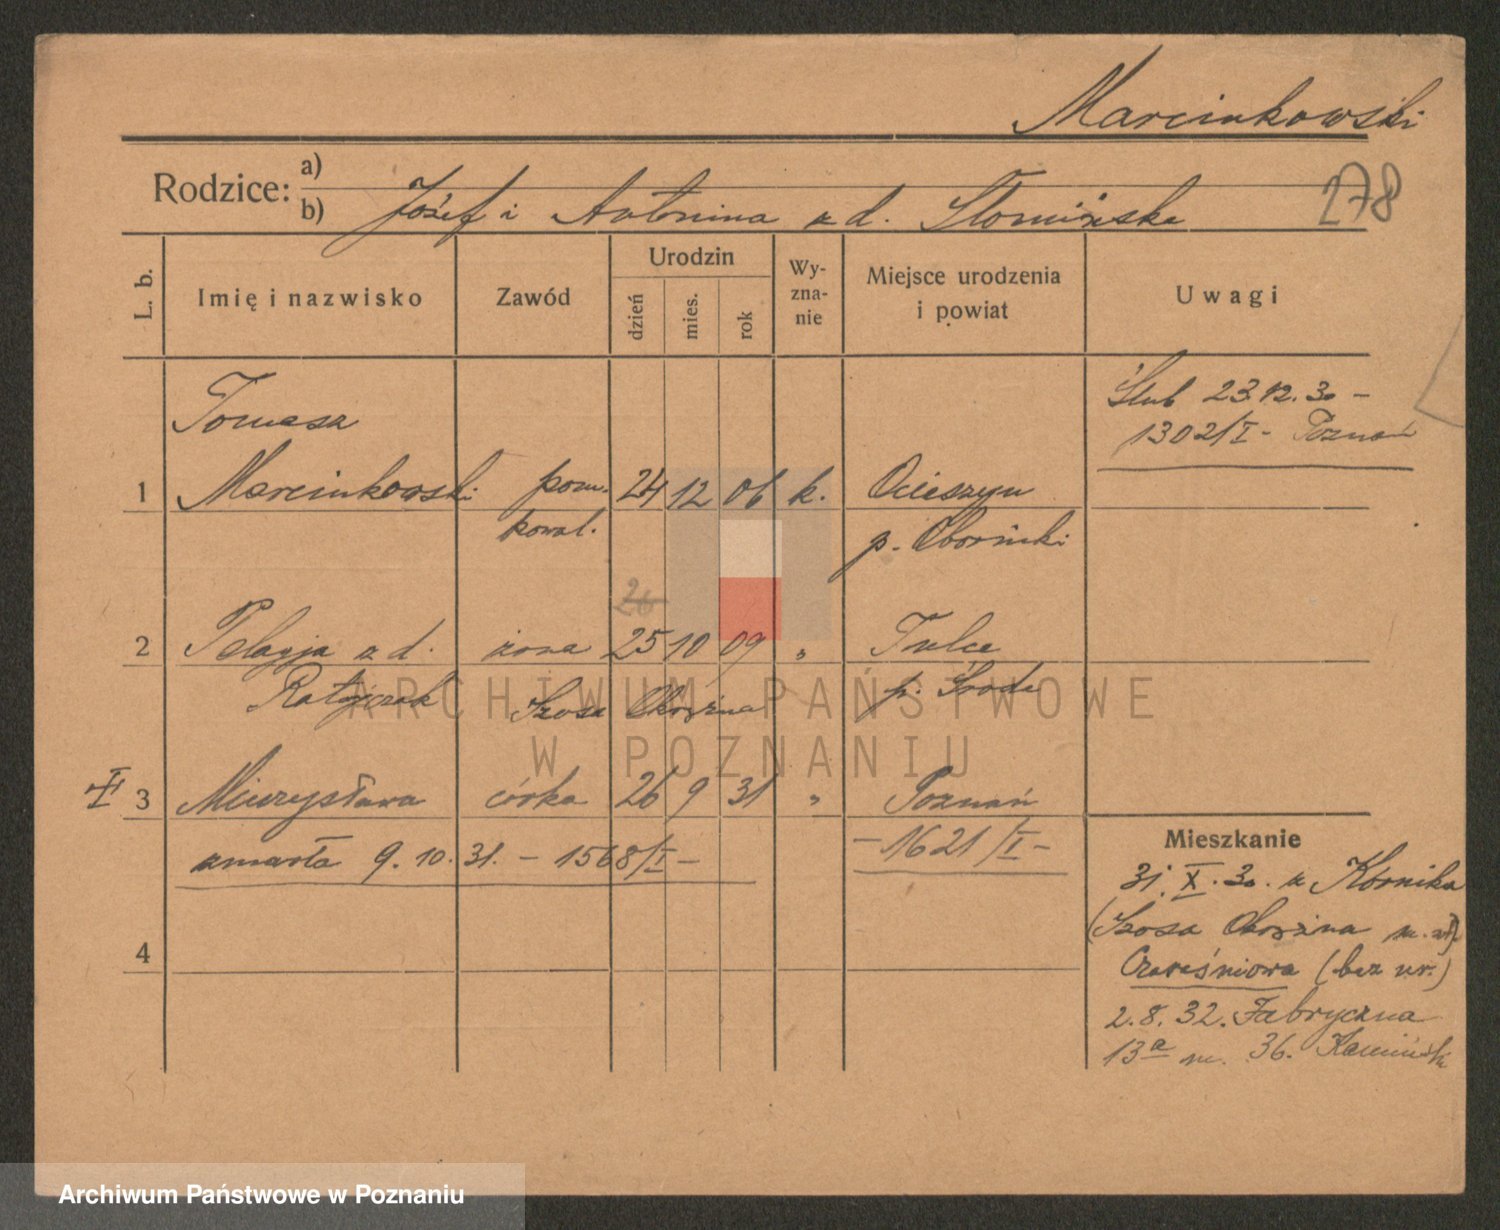 Marcinkowski
278
Rodzice: a)
b) Józef i Antonina z d. Słomińska
L. b. Imię i nazwisko Zawód Urodzin dzień mies. rok Wy-zna-nie Miejsce urodzenia i powiat Uwagi
Ślub 23.12.30 –
1302/I – Poznań
Tomasz
1 Marcinkowski pom. 24 12 06 k. Ocieszyn
kowal. p. Obornicki
26
2 Pelagja z d. żona 25 10 09 „ Tulce
Ratajczak Szosa Okrężna p. Środa
I 3 Mieczysława córka 26 9 31 „ Poznań
zmarła 9. 10. 31. – 1568/I – – 1621/I –
4
Mieszkanie
31. X. 30. z Kórnika
(Szosa Okrężna
Czereśniowa (bez nr.)
2. 8. 32. Fabryczna
13a m. 36. Kamiński
ARCHIWUM PAŃSTWOWE
W POZNANIU
Archiwum Państwowe w Poznaniu